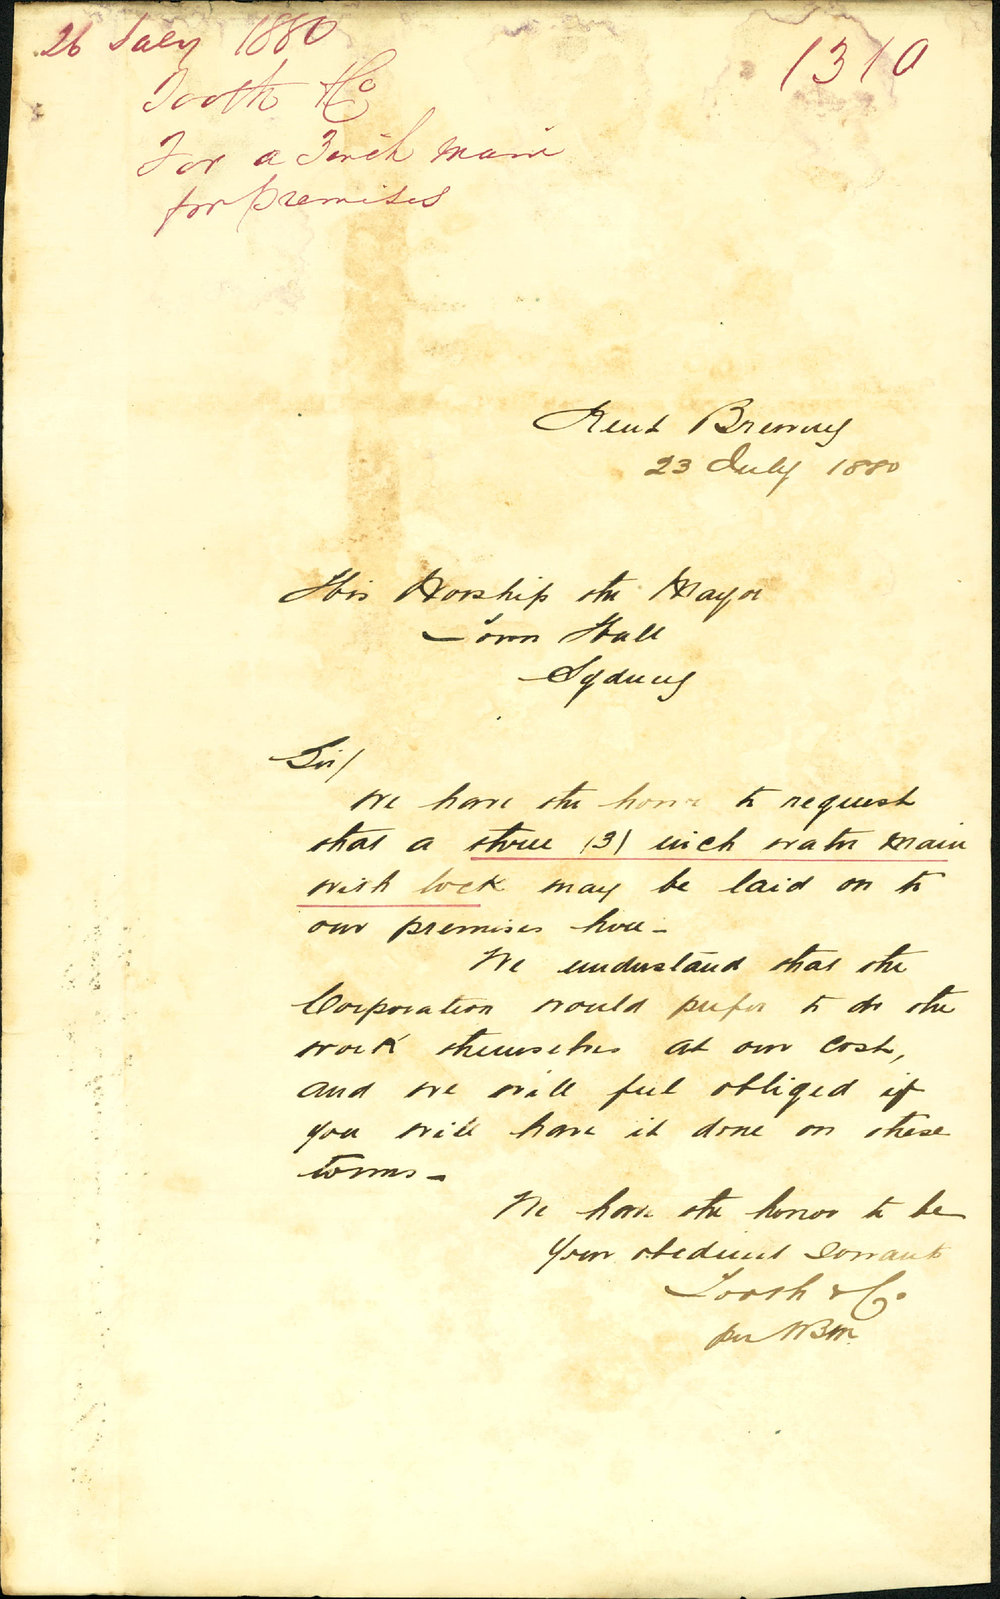 26 July 1880
1310
Tooth & Co
For a 3 inch main
for premises
Kent Brewery
23 July 1880
His Worship the Mayor
Town Hall
Sydney
Sir/
We have the honor to request
that a three (3) inch water main
with cock may be laid on to
our premises here -
We understand that the
Corporation would prefer to do the
work themselves at our cost,
and we will feel obliged if
you will have it done on these
terms -
We have the honor to be
Your obedient servants
Tooth & Co.
per